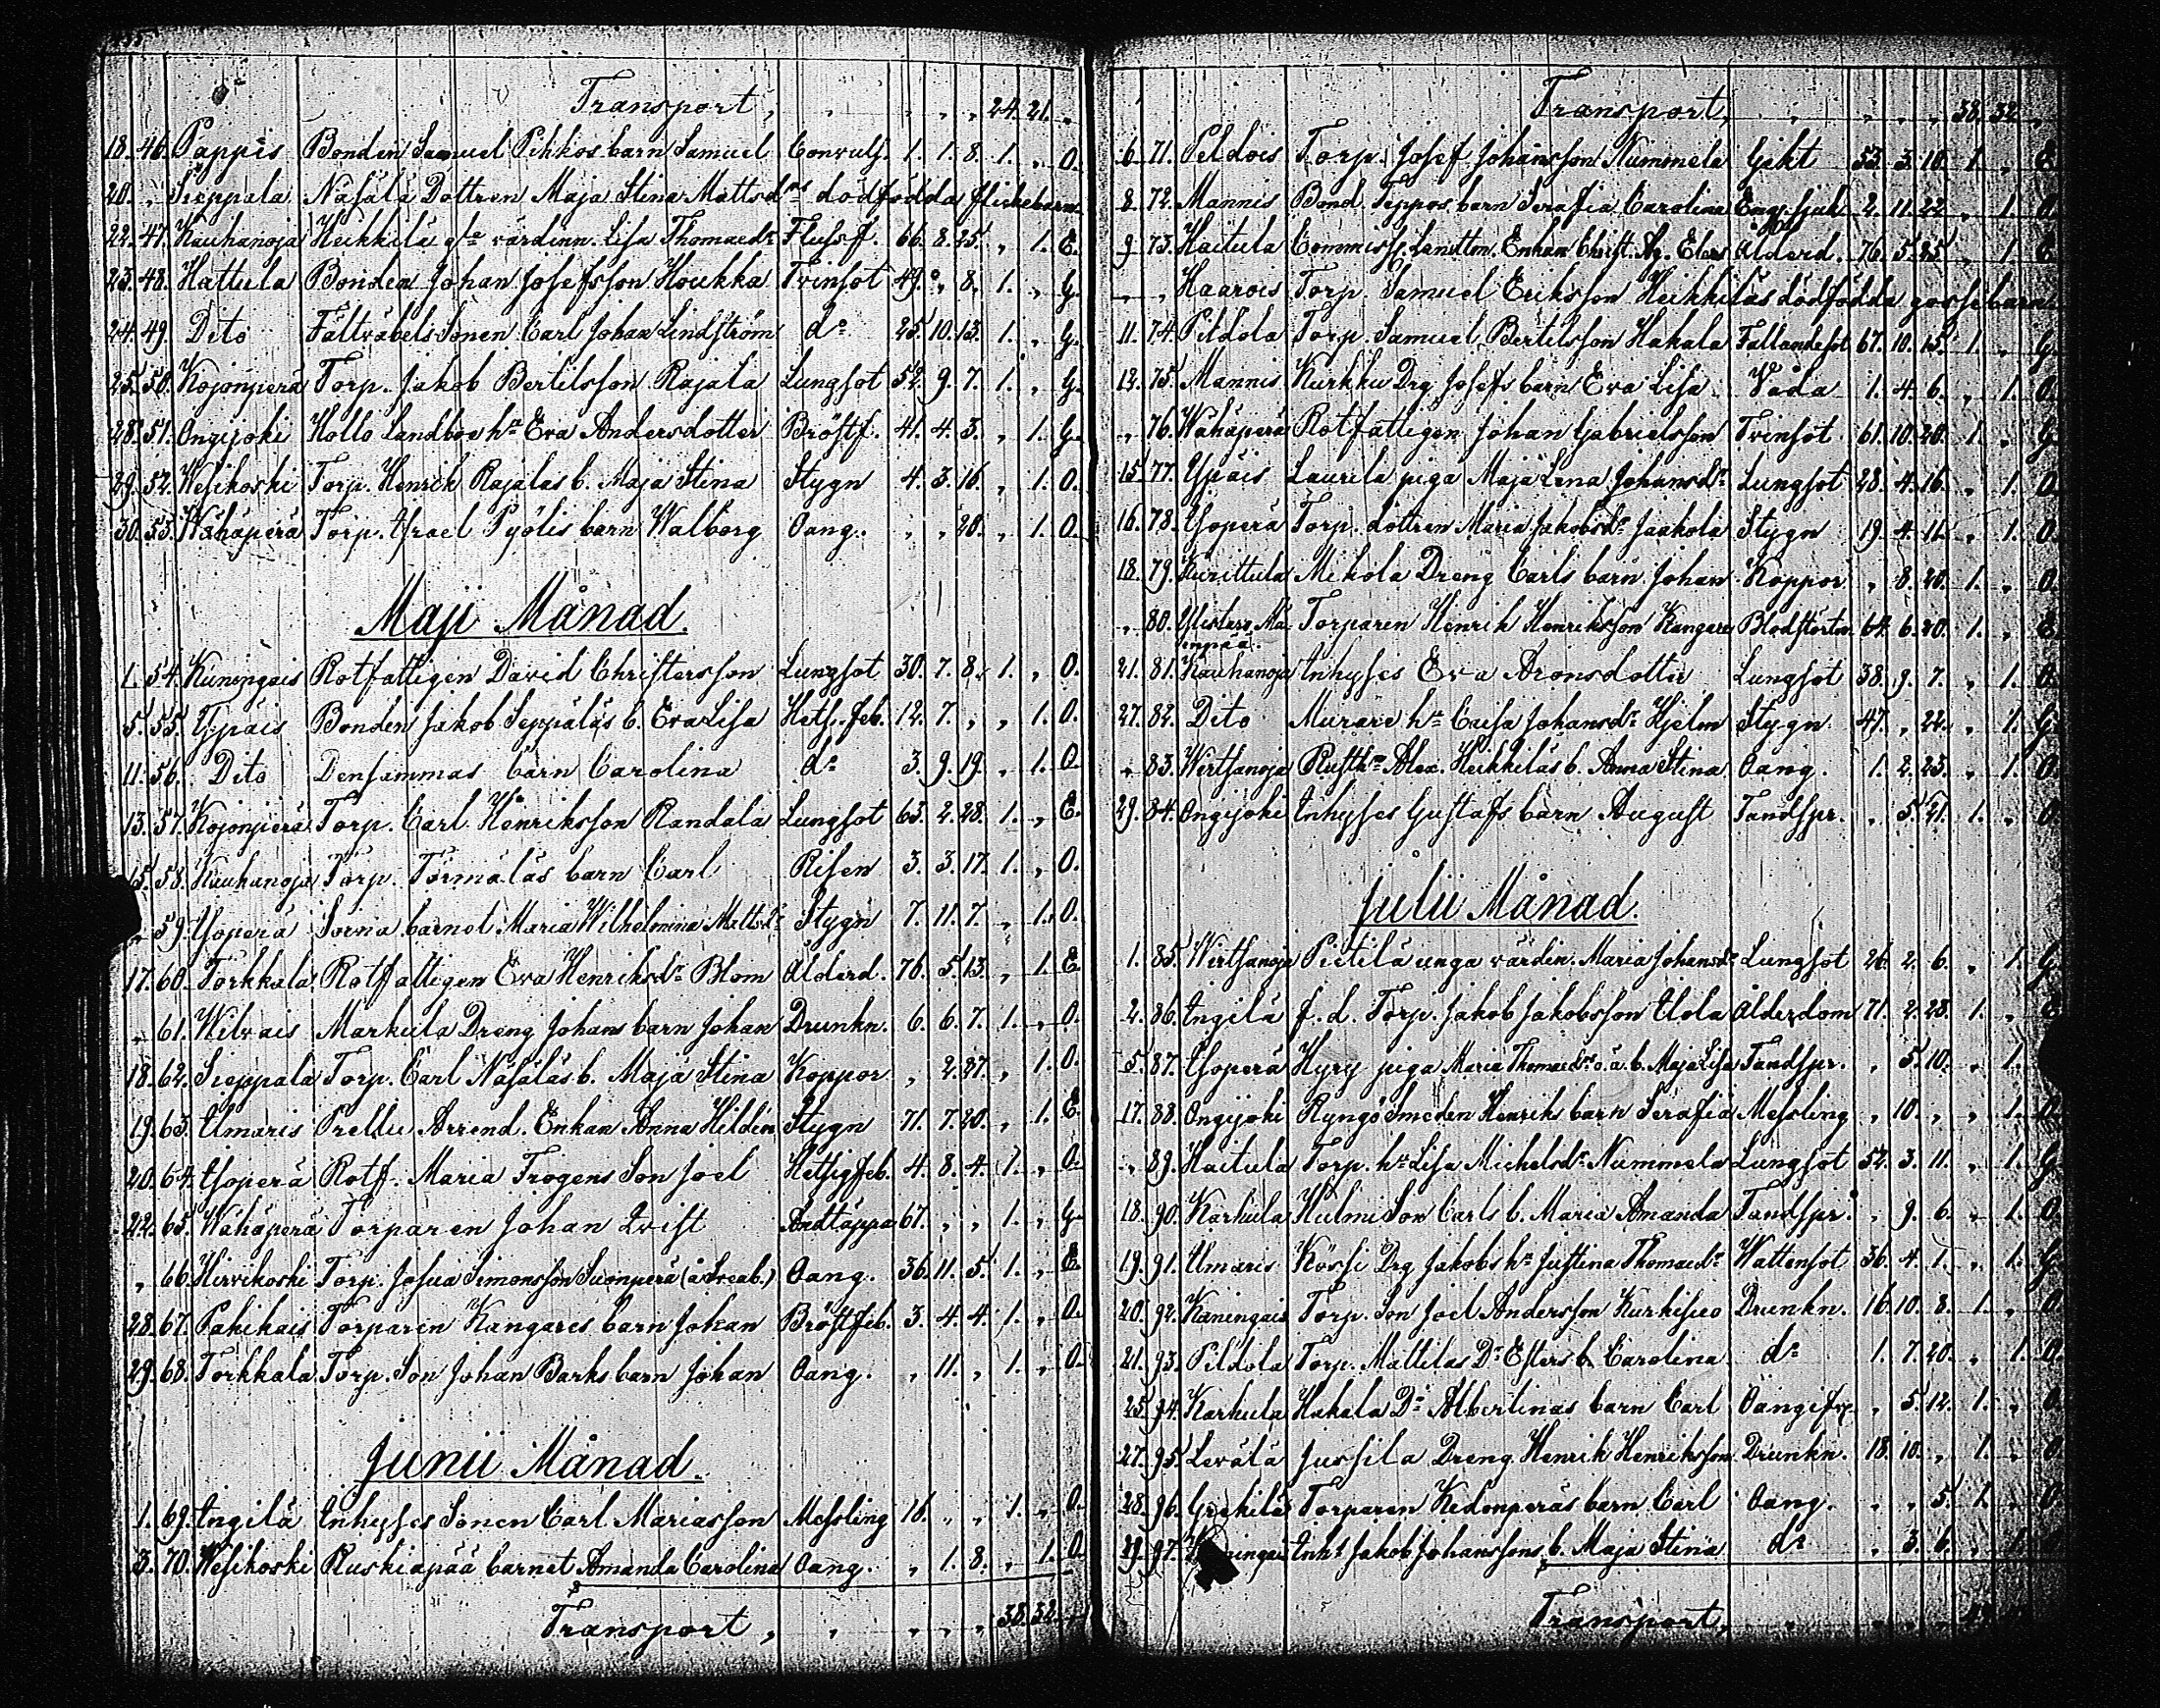 Transport, " " " " 24. 21. "
18. 46. Pappis Bonden Samuel Pihkos barn Samuel Convuls. 1. 1. 8. 1. " O.
20. " Sieppala Näsälä Dottren Maja Stina Mattsdrs dödfödda flickebarn
22. 47. Kauhanoja Heikkilä gla värdinn. Lisa Thomaedr Flussf. 66. 8. 25. " 1. E.
23. 48. Hattula Bonden Johan Josefsson Houkka Tvinsot 49. " 8. 1. " G.
24. 49. Dito Fältväbels Sonen Carl Johan Lindström do 25. 10. 13. 1. " G.
25. 50. Kojonperä Torp. Jakob Bertilsson Rajala Lungsot 52. 9. 7. 1. " G.
28. 51. Ongijoki Hollo Landboe hu Eva Andersdotter Bröstf. 41. 4. 3. " 1. G.
29. 52. Wesikoski Torp. Henrik Rajalas b. Maja Stina Stygn 4. 3. 16. " 1. O.
30. 53. Wähäperä Torp. Israel Pyölis barn Walborg Oang. " " 20. " 1. O.
Maji Månad.
1. 54. Kuningais Rotfattigen David Christersson Lungsot 30. 7. 8. 1. " O.
5. 55. Ypäis Bonden Jakob Seppäläs b. Eva Lisa Hets. feb. 12. 7. " " 1. O.
11. 56. Dito Densammas barn Carolina do 3. 9. 19. " 1. O.
13. 57. Kojonperä Torp. Carl Henriksson Randala Lungsot 63. 2. 28. 1. " E.
15. 58. Kauhanoja Torp. Törmäläs barn Carl Risen 3. 3. 17. 1. " O.
" 59. Isoperä Sorna barnet Maria Wilhelmina Mattsdr Stygn 7. 11. 7. " 1. O.
17. 60. Torkkala Rotfattigen Eva Henriksdr Blom Ålderd. 76. 5. 13. " 1. E.
" 61. Wilvais Markula Dreng Johans barn Johan Drunkn. 6. 6. 7. 1. " O.
18. 62. Sieppala Torp. Carl Näsäläs b. Maja Stina Koppor " 2. 27. " 1. O.
19. 63. Umaris Prellu Arrend. Enkan Anna Hildin Stygn 71. 7. 20. " 1. E.
20. 64. Isoperä Rotf. Maria Trogens Son Joel Hetsigfeb. 4. 8. 4. 1. " O.
22. 65. Wähäperä Torparen Johan Qvist Andtäppa 67. " " 1. " G.
" 66. Hirvikoski Torp. Josua Simonsson Suonperä Oang. 36. 11. 5. 1. " E.
28. 67. Pahikais Torparen Kangares barn Johan Bröstfeb. 3. 4. 4. 1. " O.
29. 68. Torkkala Torp. Son Johan Barks barn Johan Oang. " 11. " 1. " O.
Junii Månad.
1. 69. Ingilä Inhyses Sonen Carl Mariasson Messling 16. " " 1. " O.
3. 70. Wesikoski Ruskiapää barnet Amanda Carolina Oang. " 1. 8. " 1. O.
Transport, " " " " 38. 32.
Transport, " " " " 38. 32. "
6. 71. Peldois Torp. Josef Johansson Nummela Gikt 53. 3. 10. 1. " E.
8. 72. Mannis Bond. Teppos barn Serafia Carolina Eng. sjuk. 2. 11. 22. " 1. O.
9. 73. Haitula Commiss. Landtm. Enkan Ålderd. 76. 5. 25. " 1. E.
" " Haarois Torp. Samuel Eriksson Heikkiläs dödfödda gossebarn
11. 74. Pildola Torp. Samuel Bertilsson Hakala Fallandesot 67. 10. 15. 1. " G.
12. 75. Mannis Kurkku Drg Josefs barn Eva Lisa Våda 1. 4. 6. " 1. O.
" 76. Wähäperä Rotfattigen Johan Gabrielsson Tvinsot 61. 10. 20. 1. " G.
15. 77. Ypäis Laurila piga Maja Lena Johansdr Lungsot 28. 4. 16. " 1. O.
16. 78. Isoperä Torp. dottren Maria Jakobsdr Jaakola Stygn 19. 4. 11. " 1. O.
18. 79. Kurittula Mikola Dreng Carls barn Johan Koppor " 8. 20. 1. " O.
" 80. Torparen Henrik Henriksson Kangare Blodstörtn. 64. 6. 20. 1. " E.
21. 81. Kauhanoja Inhyses Eva Aronsdotter Lungsot 38. 9. 7. " 1. O.
27. 82. Dito Murare hu Caisa Johansdr Hjelm Stygn 47. " 22. " 1. G.
" 83. Wirtsanoja Rusth. Alex. Heikkiläs b. Anna Stina Oang. 1. 2. 23. " 1. O.
29. 84. Ongijoki Inhyses Gustafs barn August Tandspr. " 5. 21. 1. " O.
Julii Månad.
1. 85. Wirtsanoja Pietilä unga värdin. Maria Johansdr Lungsot 26. 2. 6. " 1. G.
2. 86. Ingilä f. d. Torp. Jakob Jakobsson Uola Ålderdom 71. 2. 23. 1. "
5. 87. Isoperä Hyry piga Maria Thomaedrs o.ä. b. Maja Lisa Tandspr. " 5. 10. " 1.
17. 88. Ongijoki Ryngö Smeden Henriks barn Serafia Messling " 10. " " 1. O.
" 89. Haitula Torp. hu Lisa Michelsdr Nummela Lungsot 52. 3. 11. " 1. G.
18. 90. Karhula Hulmi Son Carls b. Maria Amanda Tandspr. " 9. 6. " 1. O.
19. 91. Umaris Kössi Drg Jakobs hu Justina Thomaedr Wattensot 36. 4. 1. " 1. G.
20. 92. Kuningais Torp. Son Joel Andersson Kurkisuo Drunkn. 16. 10. 8. 1. " O.
21. 93. Pildola Torp. Mattilas Dr Esters b. Carolina do 1. 7. 20. " 1. O.
25. 94. Karhula Hakala Dr Albertinas barn Carl " 5. 12. 1. " O.
27. 95. Levälä Jussila Dreng Henrik Henriksson Drunkn. 18. 10. " 1. " O.
28. 96. Grekilä Torparen Kedonperäs barn Carl Oang. " " 5. 1. " O.
29. 97. Inhs Jakob Johanssons b. Maja Stina do " 3. 6. " 1.
Transport, " " " "